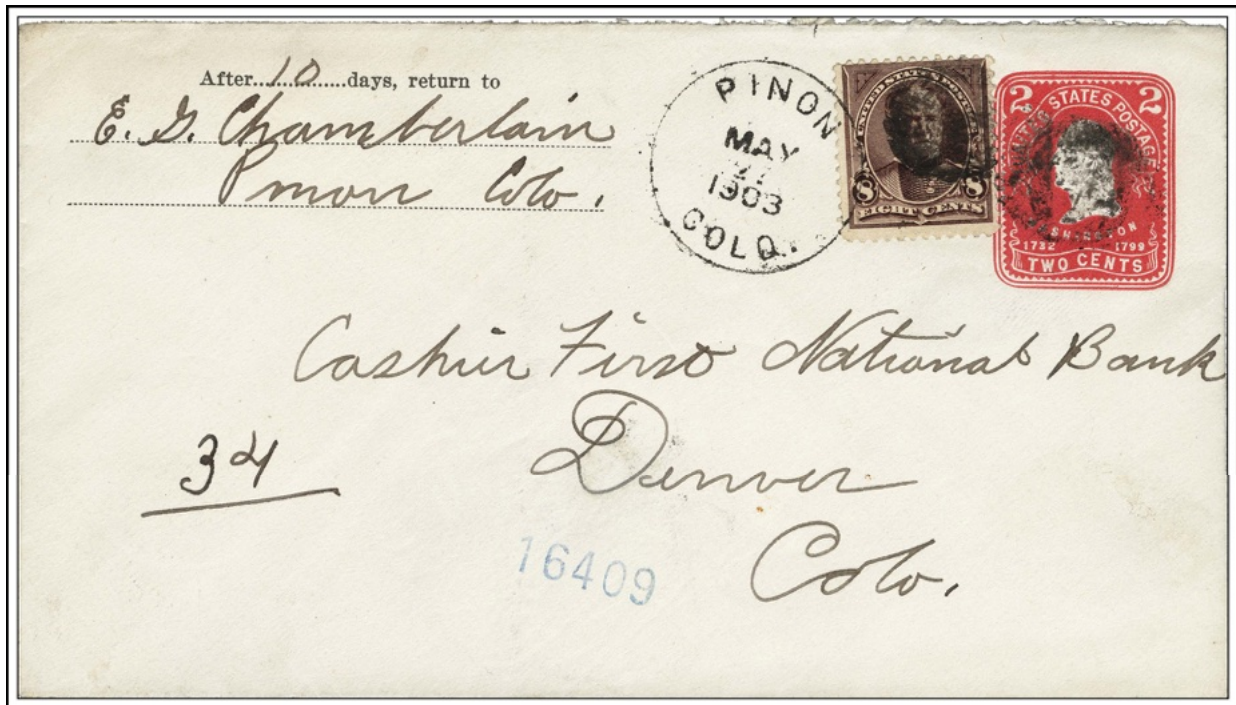 After 10 days, return to
E. G. Chamberlain
Pinon Colo.
PINON
MAY
27
1903
COLO.
UNITED STATES POSTAGE
8 8
EIGHT CENTS
2 2
UNITED STATES POSTAGE
WASHINGTON
1732 1799
TWO CENTS
Cashier First National Bank
Denver
Colo.
34
16409